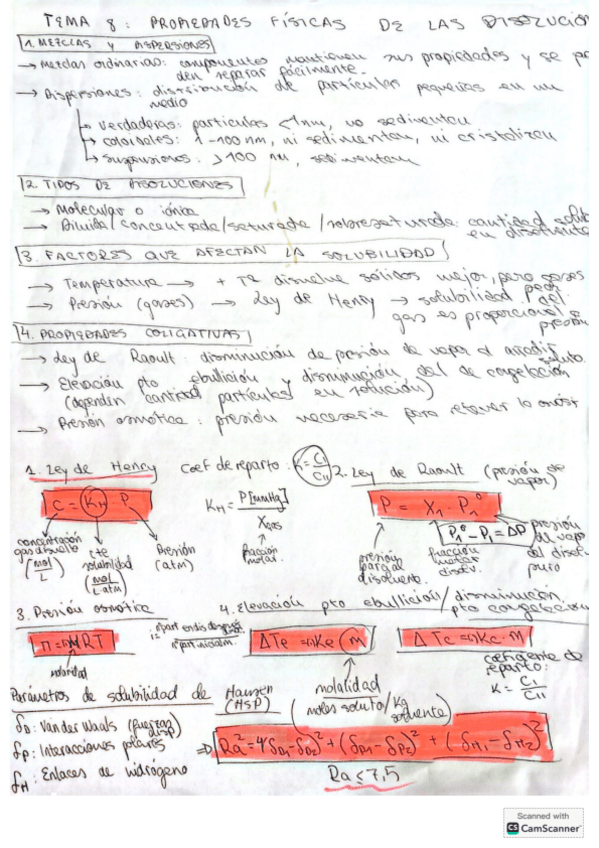 TEMA 8: PROPIEDADES FÍSICAS DE LAS DISOLUCION
1. MEZCLAS Y DISPERSIONES
→ Mezclas ordinarias: componentes mantienen sus propiedades y se pe
den separar fácilmente.
→ Dispersiones: distribución de partículas pequeñas en un
medio
→ Verdaderas: partículas <1nm, no sedimentan
→ coloidales: 1-100nm, ni sedimentan, ni cristalizan
→ suspensiones: >100 nm, sedimentan
2. TIPOS DE DISOLUCIONES
→ Molecular o iónica
→ Diluida/concentrada/saturada/sobresaturada: cantidad solut
en disolvente
3. FACTORES QUE AFECTAN LA SOLUBILIDAD
→ Temperatura → + Tª disuelve sólidos mejor, pero gases
peor
→ Presión (gases) → Ley de Henry → solubilidad del
gas es proporcional a
presión
4. PROPIEDADES COLIGATIVAS
→ Ley de Raoult: disminución de presión de vapor al añadir
soluto.
→ Elevación pto ebullición y disminución del de congelación
(dependen cantidad partículas en solución)
→ Presión osmótica: presión necesaria para retener la
1. Ley de Henry Coef de reparto: K = C₁/C₁₁ 2. Ley de Raoult (presión de
vapor)
C = KH · P KH = P[mmHg]/Xgas P = X₁ · P₁⁰
P₁⁰ - P₁ = ΔP
concentración gas disuelto (mol/L) cte solubilidad (mol/L·atm) Presión (atm) fracción molar presión parcial disolvente. fracción molar disolv. presión de vapor del disolv puro
3. Presión osmótica 4. Elevación pto ebullición/disminución
pto congelación
RT ΔTe = Ke m ΔTc = Kc · m
molaridad molalidad (moles soluto/Kg solvente) coeficiente de
reparto:
K = C₁/C₁₁
Parámetros de solubilidad de Hansen
(HSP)
δD: Van der Waals (fuerzas disp)
δP: Interacciones polares ⇒ Ra² = 4(δD₁-δD₂)² + (δP₁-δP₂)² + (δH₁-δH₂)²
δH: Enlaces de hidrógeno
Ra ≤ 7,5
Scanned with
CS CamScanner